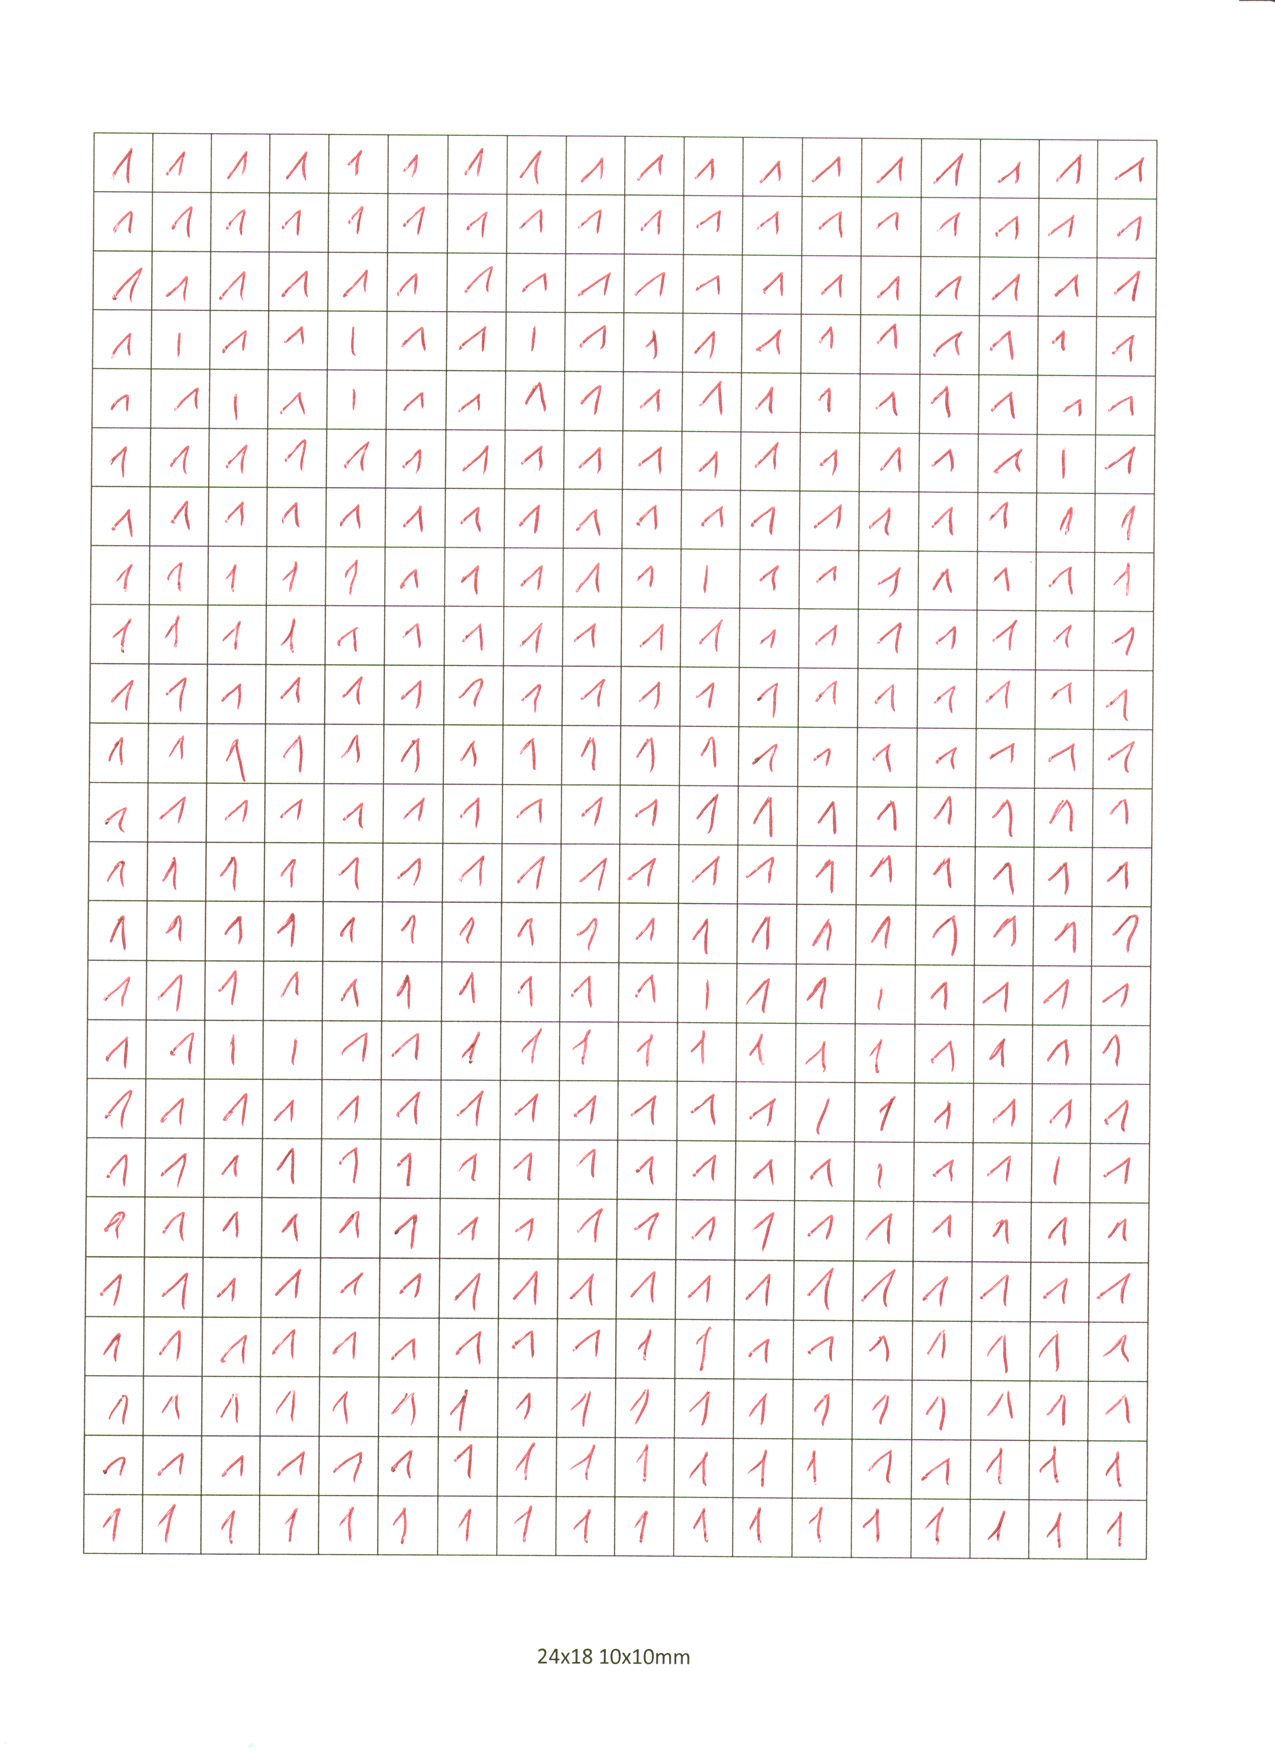 1 1 1 1 1 1 1 1 1 1 1 1 1 1 1 1 1 1
1 1 1 1 1 1 1 1 1 1 1 1 1 1 1 1 1 1
1 1 1 1 1 1 1 1 1 1 1 1 1 1 1 1 1 1
1 1 1 1 1 1 1 1 1 1 1 1 1 1 1 1 1 1
1 1 1 1 1 1 1 1 1 1 1 1 1 1 1 1 1 1
1 1 1 1 1 1 1 1 1 1 1 1 1 1 1 1 1 1
1 1 1 1 1 1 1 1 1 1 1 1 1 1 1 1 1 1
1 1 1 1 1 1 1 1 1 1 1 1 1 1 1 1 1 1
1 1 1 1 1 1 1 1 1 1 1 1 1 1 1 1 1 1
1 1 1 1 1 1 1 1 1 1 1 1 1 1 1 1 1 1
1 1 1 1 1 1 1 1 1 1 1 1 1 1 1 1 1 1
1 1 1 1 1 1 1 1 1 1 1 1 1 1 1 1 1 1
1 1 1 1 1 1 1 1 1 1 1 1 1 1 1 1 1 1
1 1 1 1 1 1 1 1 1 1 1 1 1 1 1 1 1 1
1 1 1 1 1 1 1 1 1 1 1 1 1 1 1 1 1 1
1 1 1 1 1 1 1 1 1 1 1 1 1 1 1 1 1 1
1 1 1 1 1 1 1 1 1 1 1 1 1 1 1 1 1 1
1 1 1 1 1 1 1 1 1 1 1 1 1 1 1 1 1 1
1 1 1 1 1 1 1 1 1 1 1 1 1 1 1 1 1 1
1 1 1 1 1 1 1 1 1 1 1 1 1 1 1 1 1 1
1 1 1 1 1 1 1 1 1 1 1 1 1 1 1 1 1 1
1 1 1 1 1 1 1 1 1 1 1 1 1 1 1 1 1 1
1 1 1 1 1 1 1 1 1 1 1 1 1 1 1 1 1 1
1 1 1 1 1 1 1 1 1 1 1 1 1 1 1 1 1 1
24x18 10x10mm